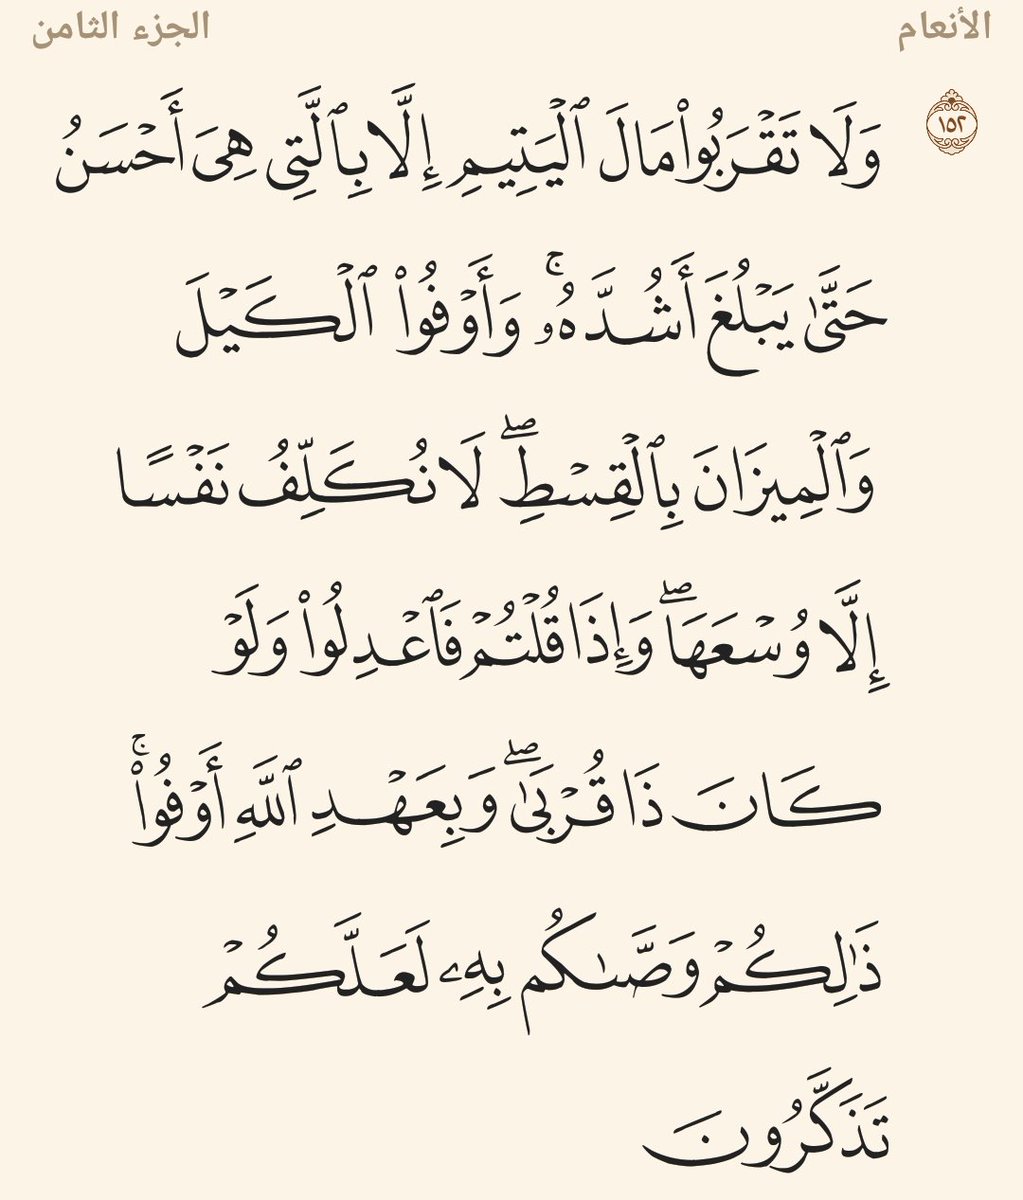 الأنعام الجزء الثامن
١٥٢ وَلَا تَقۡرَبُواْ مَالَ ٱلۡيَتِيمِ إِلَّا بِٱلَّتِي هِيَ أَحۡسَنُ
حَتَّىٰ يَبۡلُغَ أَشُدَّهُۥۚ وَأَوۡفُواْ ٱلۡكَيۡلَ
وَٱلۡمِيزَانَ بِٱلۡقِسۡطِۖ لَا نُكَلِّفُ نَفۡسًا
إِلَّا وُسۡعَهَاۖ وَإِذَا قُلۡتُمۡ فَٱعۡدِلُواْ وَلَوۡ
كَانَ ذَا قُرۡبَىٰۖ وَبِعَهۡدِ ٱللَّهِ أَوۡفُواْۚ
ذَٰلِكُمۡ وَصَّىٰكُم بِهِۦ لَعَلَّكُمۡ
تَذَكَّرُونَ